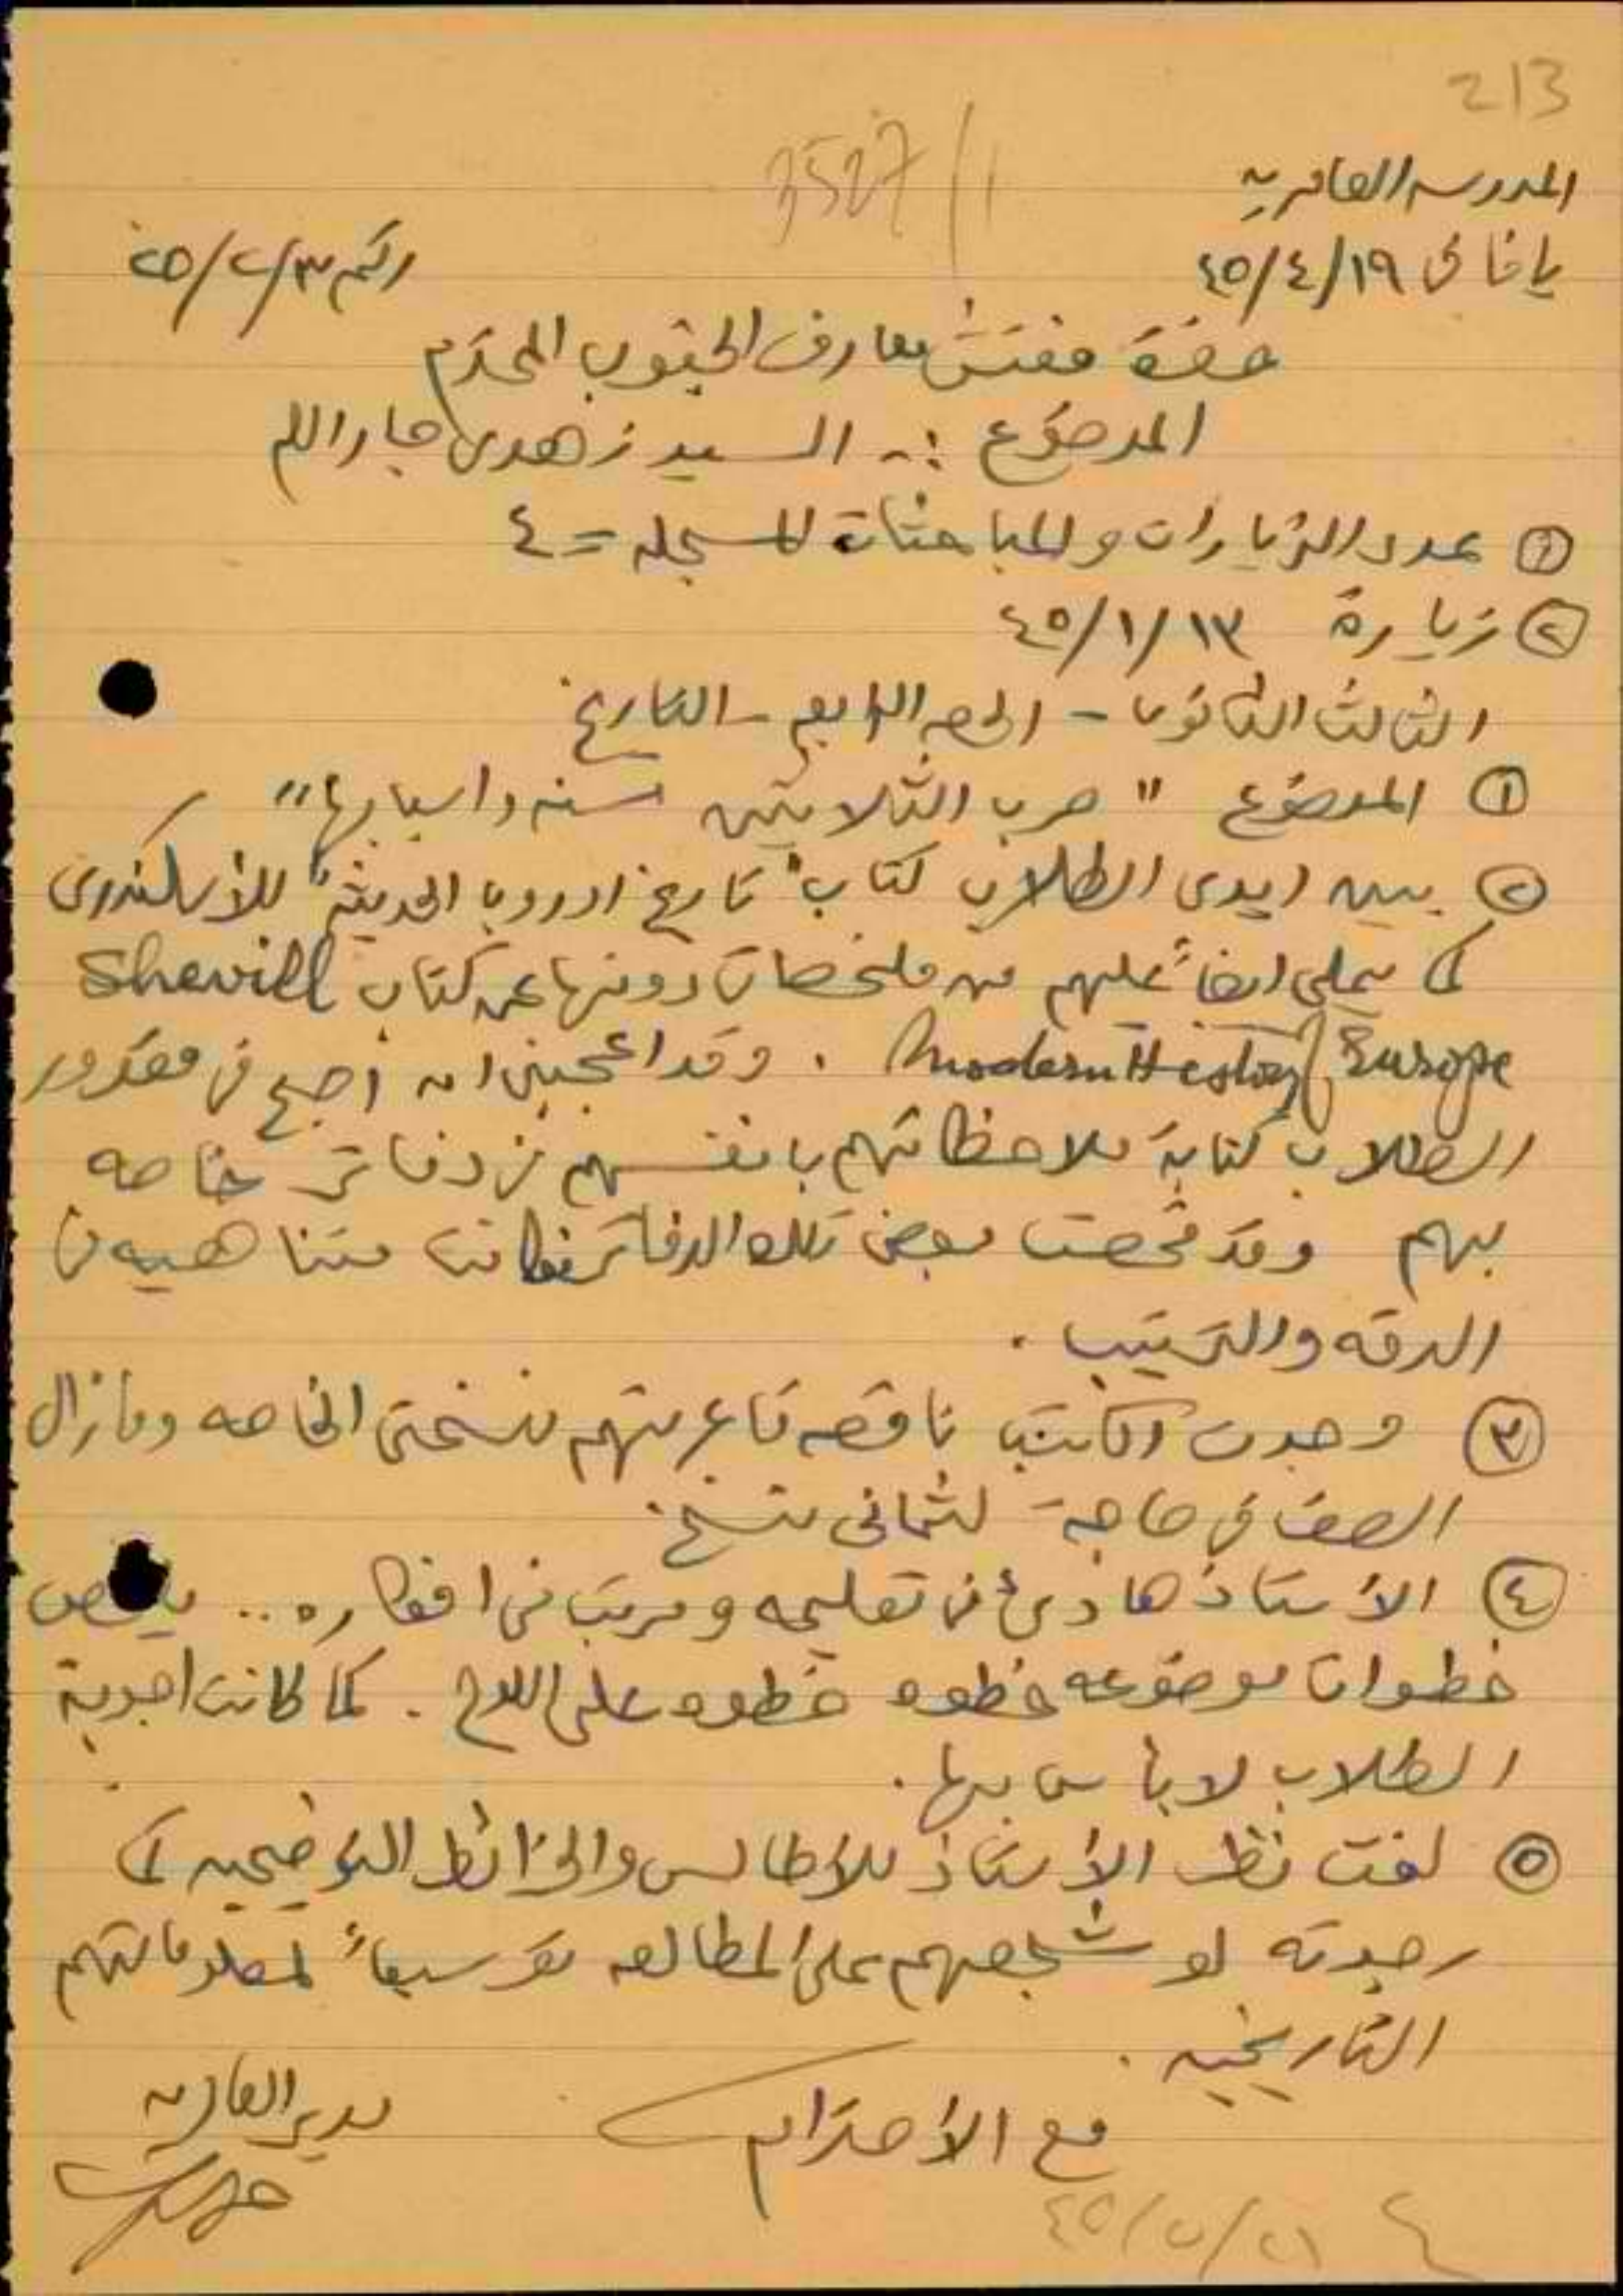 213
3527/1
المدرسه العامريه
يافا في ١٩/٤/٤٥
رقم ٣/٢/٢٥
حضرة مفتش معارف الجنوب المحترم
الموضوع :- السيد زهدي جار الله
① عدد الزيارات والمباحثات المسجله = ٤
② زيارة ١٣/١/٤٥
الثالث الثانوي - الحصه الرابعه - التاريخ
① الموضوع "حرب الثلاثين سنه واسبابها"
② بين ايدي الطلاب كتاب "تاريخ اوروبا الحديثه" للأسكندري
كما يملي ايضاً عليهم من ملخصات دونها عن كتاب Shevill
Modern History of Europe . وقد اعجبني انه اصبح في مقدور
الطلاب كتابة ملاحظاتهم بانفسهم في دفاتر خاصه
بهم وقد فحصت بعض تلك الدفاتر فكانت متناهيه في
الدقه والترتيب .
③ وجدت الكتب ناقصه فاعرتهم نسختي الخاصه وما زال
الصف في حاجة لثماني نسخ .
④ الأستاذ هادئ في تعليمه ومرتب في افكاره ..
خطوات موضوعه خطوه خطوه على اللوح . كما كانت اجوبة
الطلاب لا بأس بها .
⑤ لفت نظر الأستاذ للأطالس والخرائط التوضيحيه كما
رجوته لو شجعهم على المطالعه توسيعاً لمعلوماتهم
التاريخيه .
مع الأحترام
مدير العامريه
٢١/٥/٤٥